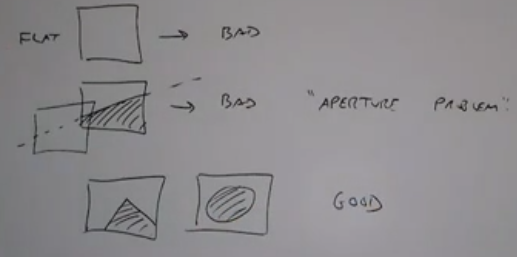 FLAT → BAD
→ BAD "APERTURE PROBLEM".
GOOD